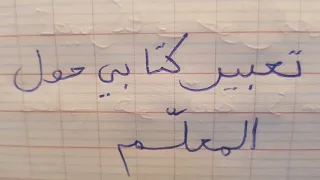 تعبير كتابي حول
المعلّم